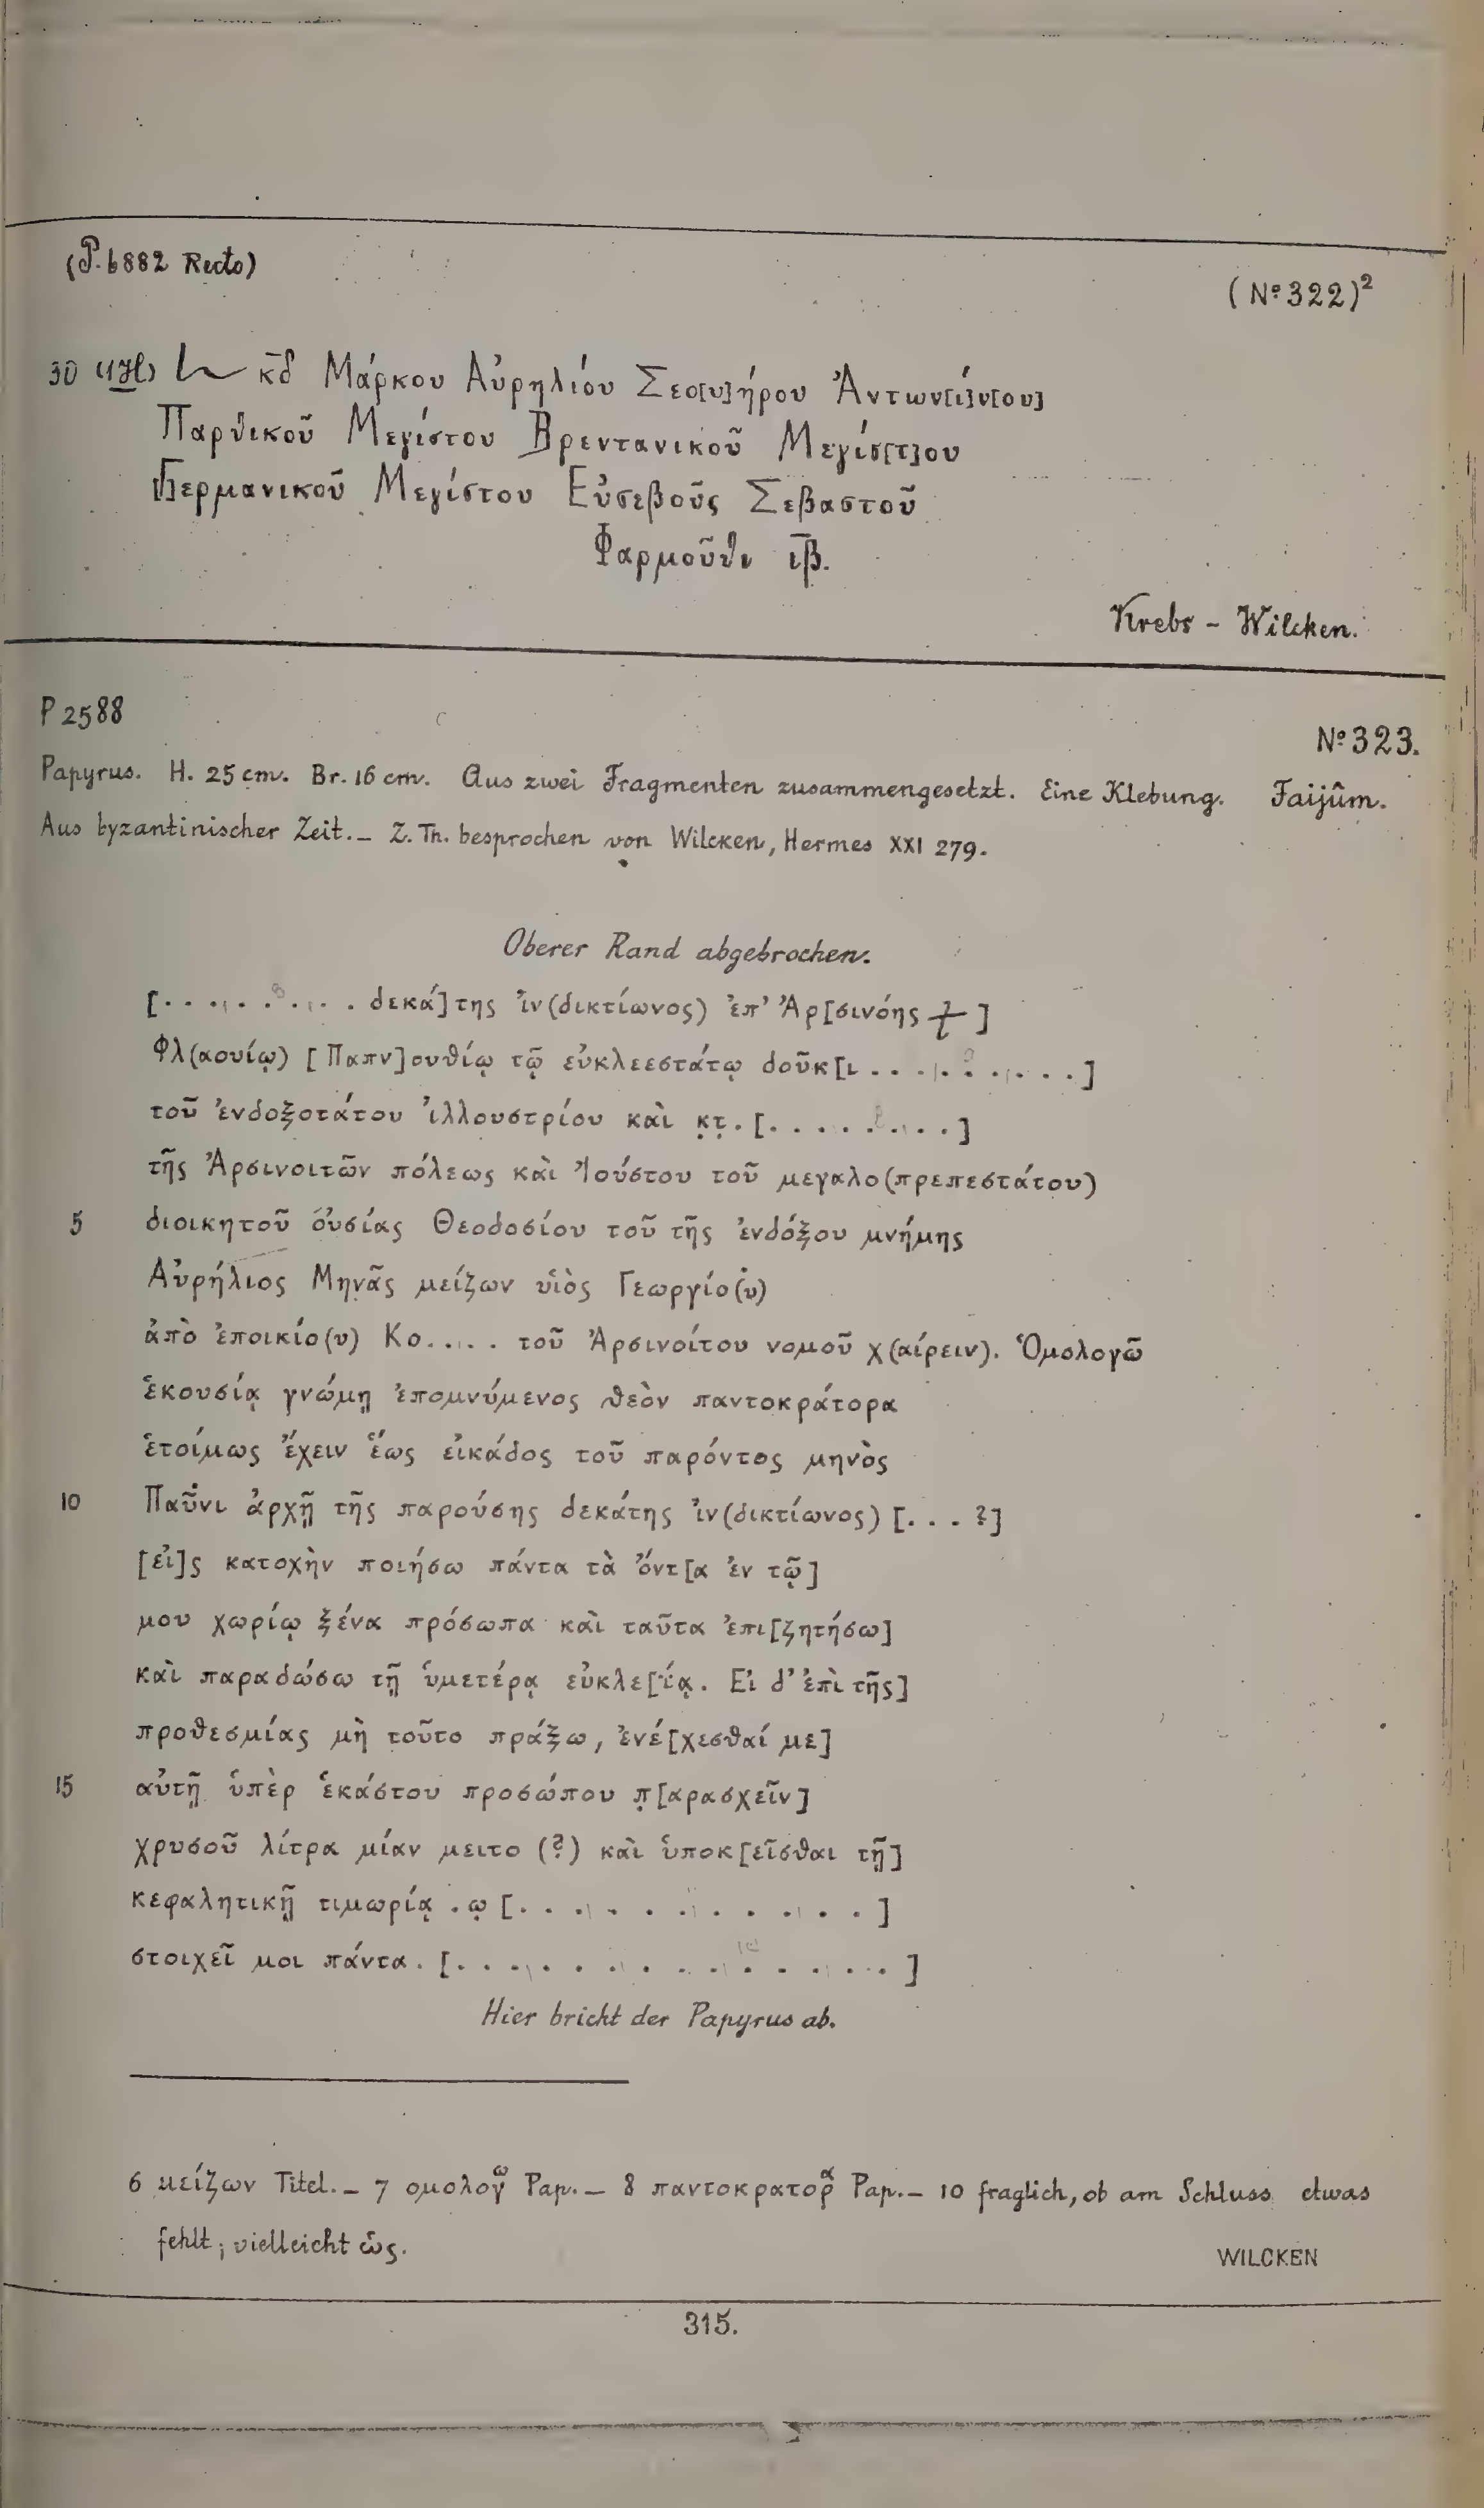 (P. 6882 Recto)
(No 322)²
30 (1H) κ̅δ̅ Μάρκου Αὐρηλίου Σεο[υ]ήρου Ἀντων[ί]ν[ου]
Παρθικοῦ Μεγίστου Βρεντανικοῦ Μεγίσ[τ]ου
[Γ]ερμανικοῦ Μεγίστου Εὐσεβοῦς Σεβαστοῦ
Φαρμοῦθι ι̅β̅.
Krebs - Wilcken.
P 2588
No 323.
Papyrus. H. 25 cm. Br. 16 cm. Aus zwei Fragmenten zusammengesetzt. Eine Klebung. Faijûm.
Aus byzantinischer Zeit. _ Z. Th. besprochen von Wilcken, Hermes XXI 279.
Oberer Rand abgebrochen.
[. . . . . . . . . δεκά]της ἰν(δικτίωνος) ἐπ' Ἀρ[σινόης ⳨]
Φλ(αουίῳ) [Παπν]ουθίῳ τῷ εὐκλεεστάτῳ δοῦκ[ι . . . . . . . . . .]
τοῦ ἐνδοξοτάτου ἰλλουστρίου καὶ κ̣τ̣. [. . . . . . . . .]
τῆς Ἀρσινοιτῶν πόλεως καὶ Ἰούστου τοῦ μεγαλο(πρεπεστάτου)
5 διοικητοῦ οὐσίας Θεοδοσίου τοῦ τῆς ἐνδόξου μνήμης
Αὐρήλιος Μηνᾶς μείζων υἱὸς Γεωργίο(υ)
ἀπὸ ἐποικίο(υ) Κο. . . . . τοῦ Ἀρσινοίτου νομοῦ χ(αίρειν). Ὁμολογῶ
ἑκουσίᾳ γνώμῃ ἐπομνύμενος θεὸν παντοκράτορα
ἑτοίμως ἔχειν ἕως εἰκάδος τοῦ παρόντος μηνὸς
10 Παῦνι ἀρχῇ τῆς παρούσης δεκάτης ἰν(δικτίωνος) [. . . ?]
[εἰ]ς κατοχὴν ποιήσω πάντα τὰ ὄντ[α ἐν τῷ]
μου χωρίῳ ξένα πρόσωπα καὶ ταῦτα ἐπι[ζητήσω]
καὶ παραδώσω τῇ ὑμετέρᾳ εὐκλε[ίᾳ. Εἰ δ' ἐπὶ τῆς]
προθεσμίας μὴ τοῦτο πράξω, ἐνέ[χεσθαί με]
15 αὐτῇ ὑπὲρ ἑκάστου προσώπου π̣[αρασχεῖν]
χρυσοῦ λίτρα μίαν μειτο (?) καὶ ὑποκ[εῖσθαι τῇ]
κεφαλητικῇ τιμωρίᾳ . ῳ [. . . . . . . . . . . .]
στοιχεῖ μοι πάντα. [. . . . . . . . . . . . . . .]
Hier bricht der Papyrus ab.
6 μείζων Titel. _ 7 ομολογῶ Pap. _ 8 παντοκρατορα Pap. _ 10 fraglich, ob am Schluss etwas
fehlt; vielleicht ὡς.
WILCKEN
315.